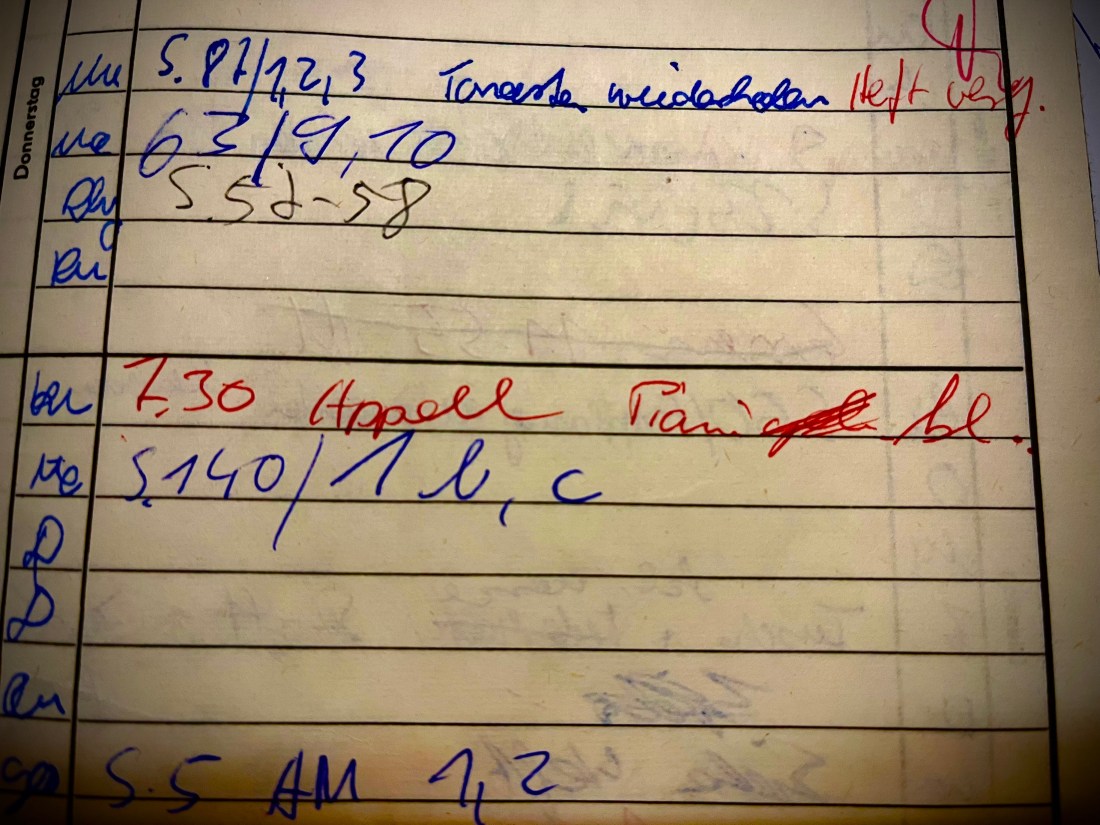 Donnerstag
Mu S. 87/1,2,3 Tonarten wiederholen Heft verg.
Ma 63/9,10
Phy S. 57-58
Ku
7.30 Appell bl.
Ma S. 140/1 b, c
D
D
S. 5 AM 1,2